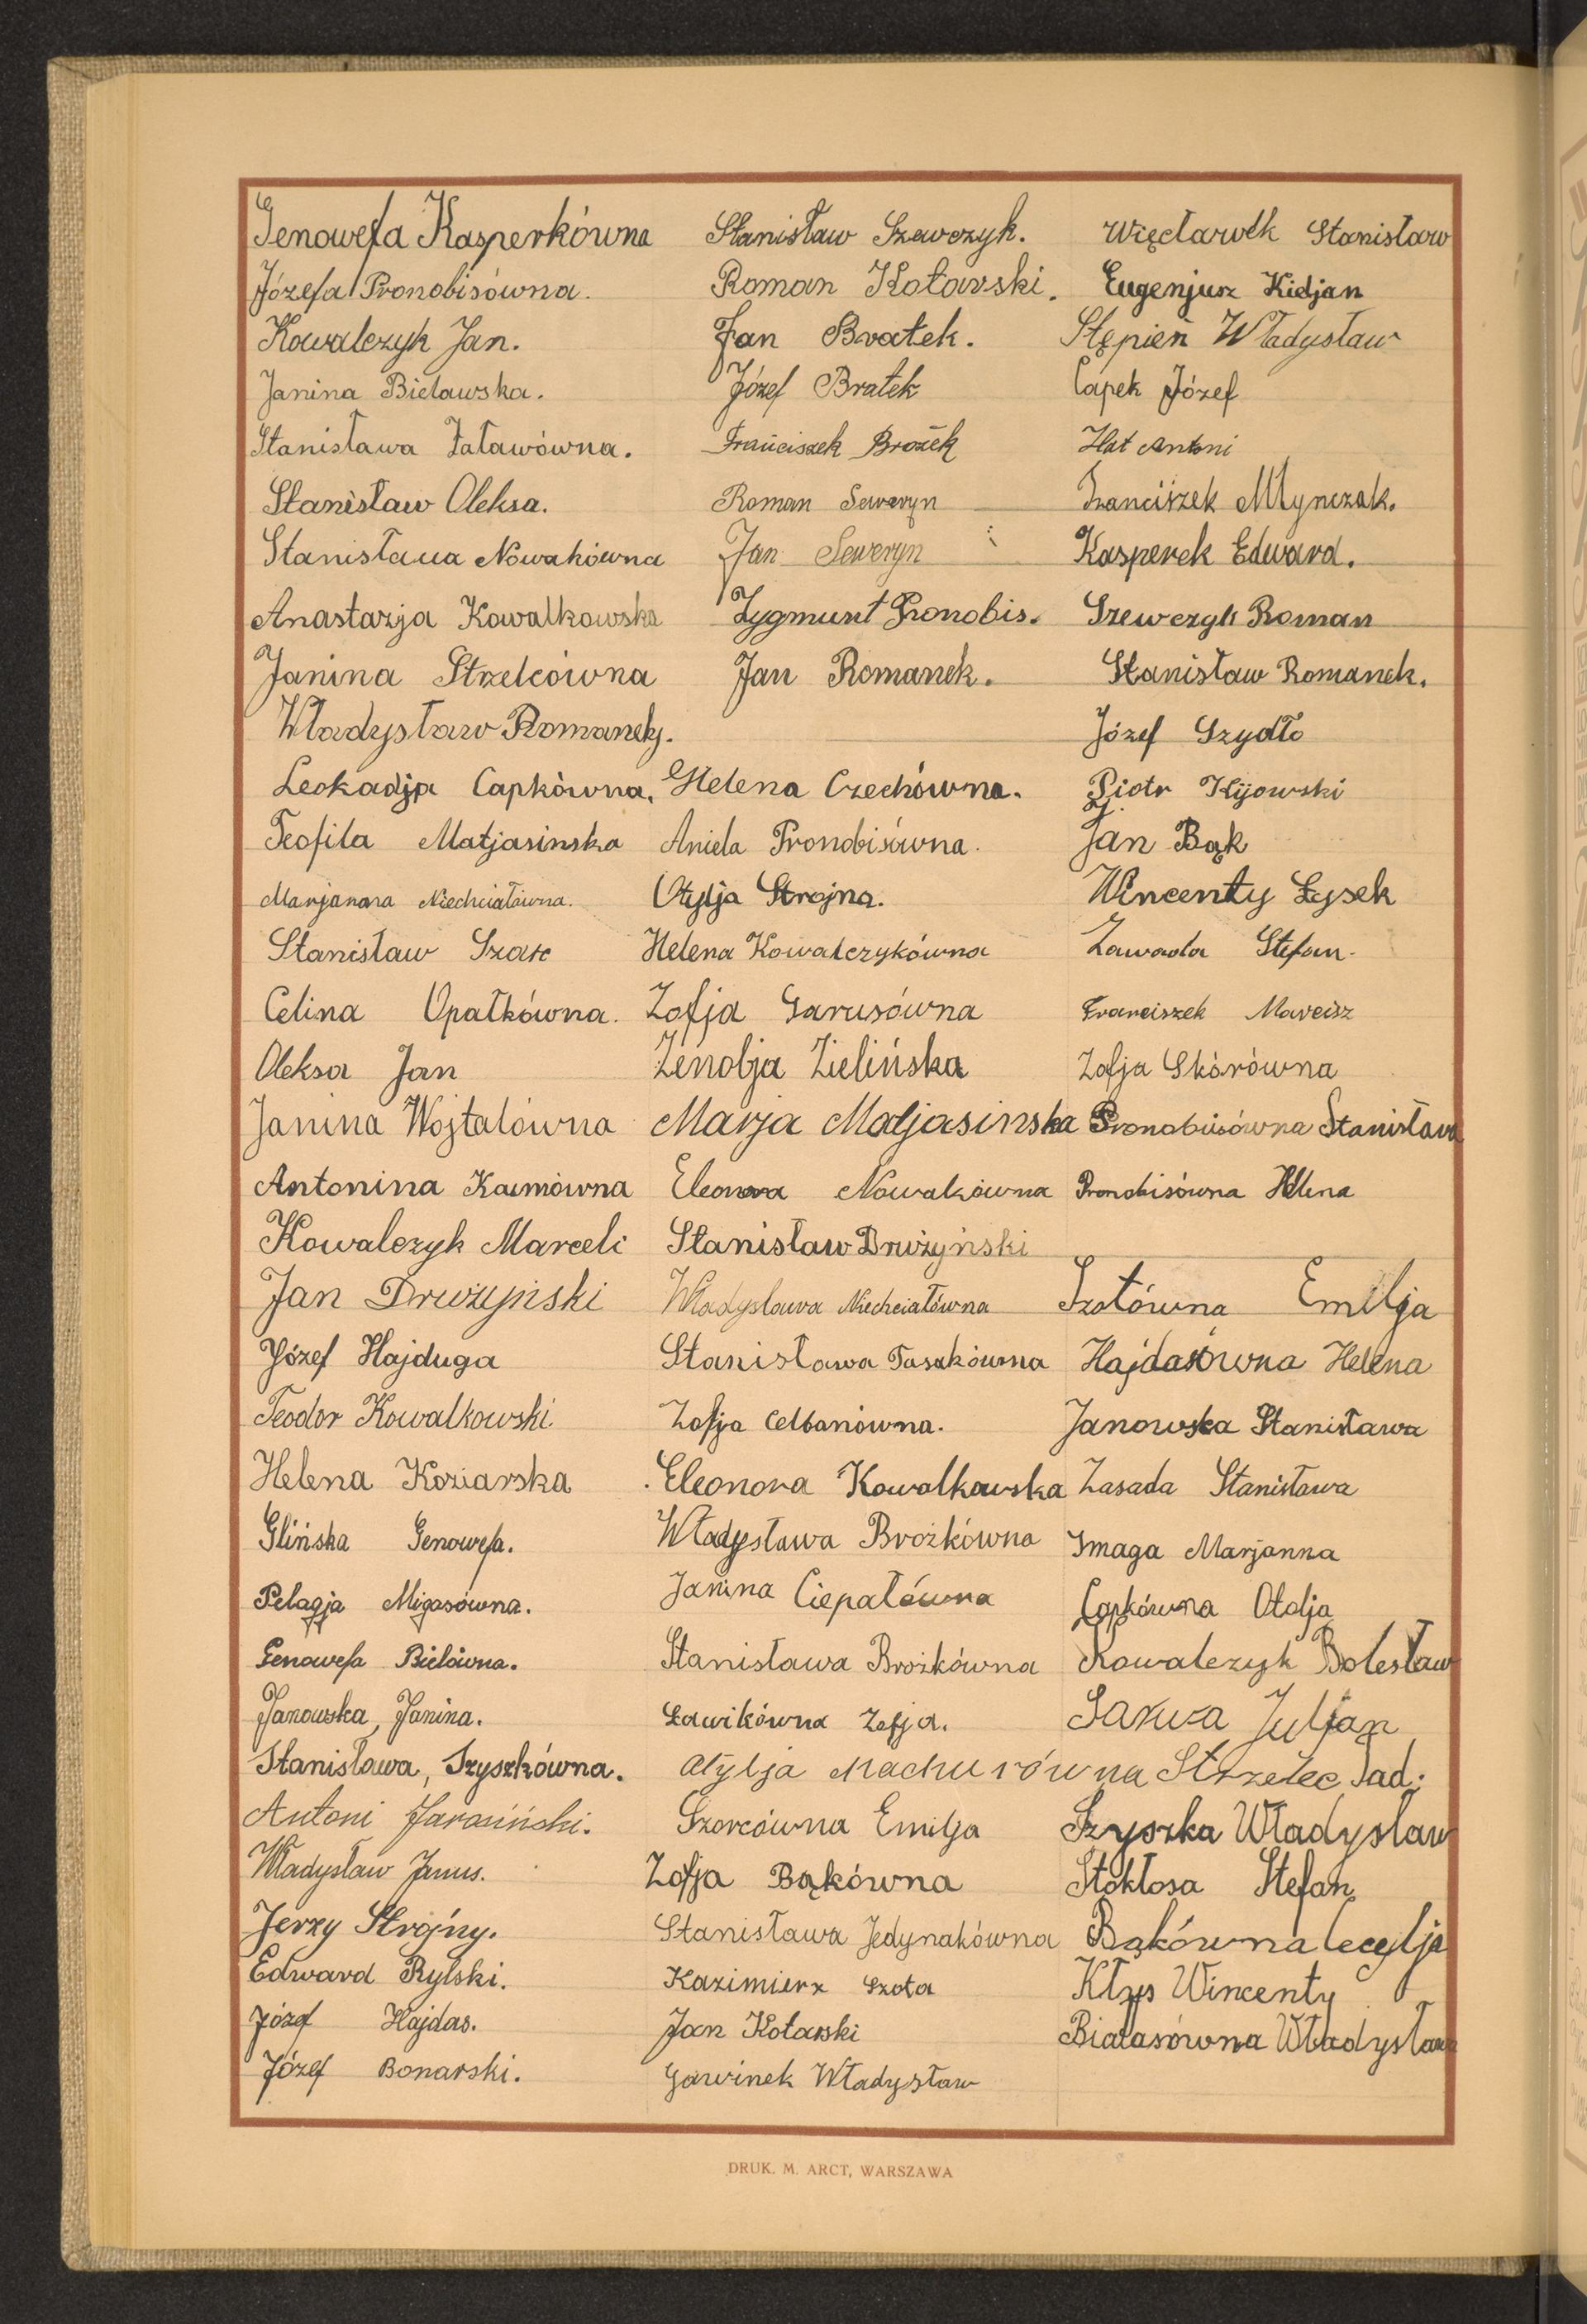 Genowefa Kasperkówna
Józefa Pronobisówna.
Kowalczyk Jan.
Janina Bielawska.
Stanisława Załawówna.
Stanisław Oleksa.
Stanisława Nowakówna
Anastazja Kowalkowska
Janina Strzelcówna
Władysław Romanek.
Leokadja Capkówna.
Teofila Matjasinska
Marjanna Niechciałówna.
Stanisław Szarc
Celina Opałkówna.
Oleksa Jan
Janina Wojtalówna
Antonina
Kowalczyk Marceli
Jan Drużyński
Józef Hajduga
Teodor Kowalkowski
Helena Koziarska
Glińska Genowefa.
Pelagja Migasówna.
Genowefa Bielówna.
Janowska, Janina.
Stanisława, Szyszkówna.
Antoni Jarosiński.
Władysław Janus.
Jerzy Strojny.
Edward Rylski.
Józef Hajdas.
Józef Bonarski.
Stanisław Szewczyk.
Roman Kotarski.
Jan Bratek.
Józef Bratek
Franciszek Brożek
Roman Seweryn
Jan Seweryn
Zygmunt Pronobis.
Jan Romanek.
Helena Czechówna.
Aniela Pronobisówna.
Otylja Strojna.
Helena Kowalczykówna
Zofja Garusówna
Zenobja Zielińska
Marja Matjasinska
Eleonora Nowakówna
Stanisław Drużyński
Władysława Niechciałówna
Stanisława Tasakówna
Zofja Celbanówna.
Eleonora Kowalkowska
Władysława Brożkówna
Janina Ciepałówna
Stanisława Brożkówna
Ławikówna Zofja.
Otylja Machurówna
Szorcówna Emilja
Zofja Bąkówna
Stanisława Jedynakówna
Kazimierz Szota
Jan Kotarski
Gawinek Władysław
Więcławek Stanisław
Eugenjusz Kidjan
Stępień Władysław
Capek Józef
Antoni
Franciszek Młynczak.
Kasperek Edward.
Szewczyk Roman
Stanisław Romanek.
Józef Szydło
Piotr Kijowski
Jan Bąk
Wincenty Łysek
Zawada Stefan.
Franciszek Marcisz
Zofja Skórówna
Pronobisówna Stanisława
Pronobisówna Helena
Szotówna Emilja
Hajdasówna Helena
Janowska Stanisława
Zasada Stanisława
Smaga Marjanna
Capkówna Otolja
Kowalczyk Bolesław
Sarwa Juljan
Strzelec Tad.
Szyszka Władysław
Stokłosa Stefan
Bąkówna Cecylja
Kłys Wincenty
Białasówna Władysława
DRUK. M. ARCT, WARSZAWA